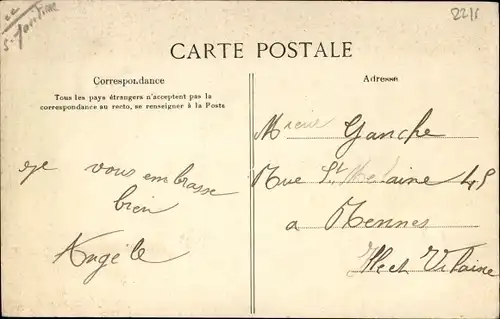 2211
CARTE POSTALE
Correspondance
Tous les pays étrangers n'acceptent pas la
correspondance au recto, se renseigner à la Poste
Je vous embrasse
bien
Angèle
Adresse
Mr Ganche
Rue St Melaine 45
a Rennes
Ille et Vilaine